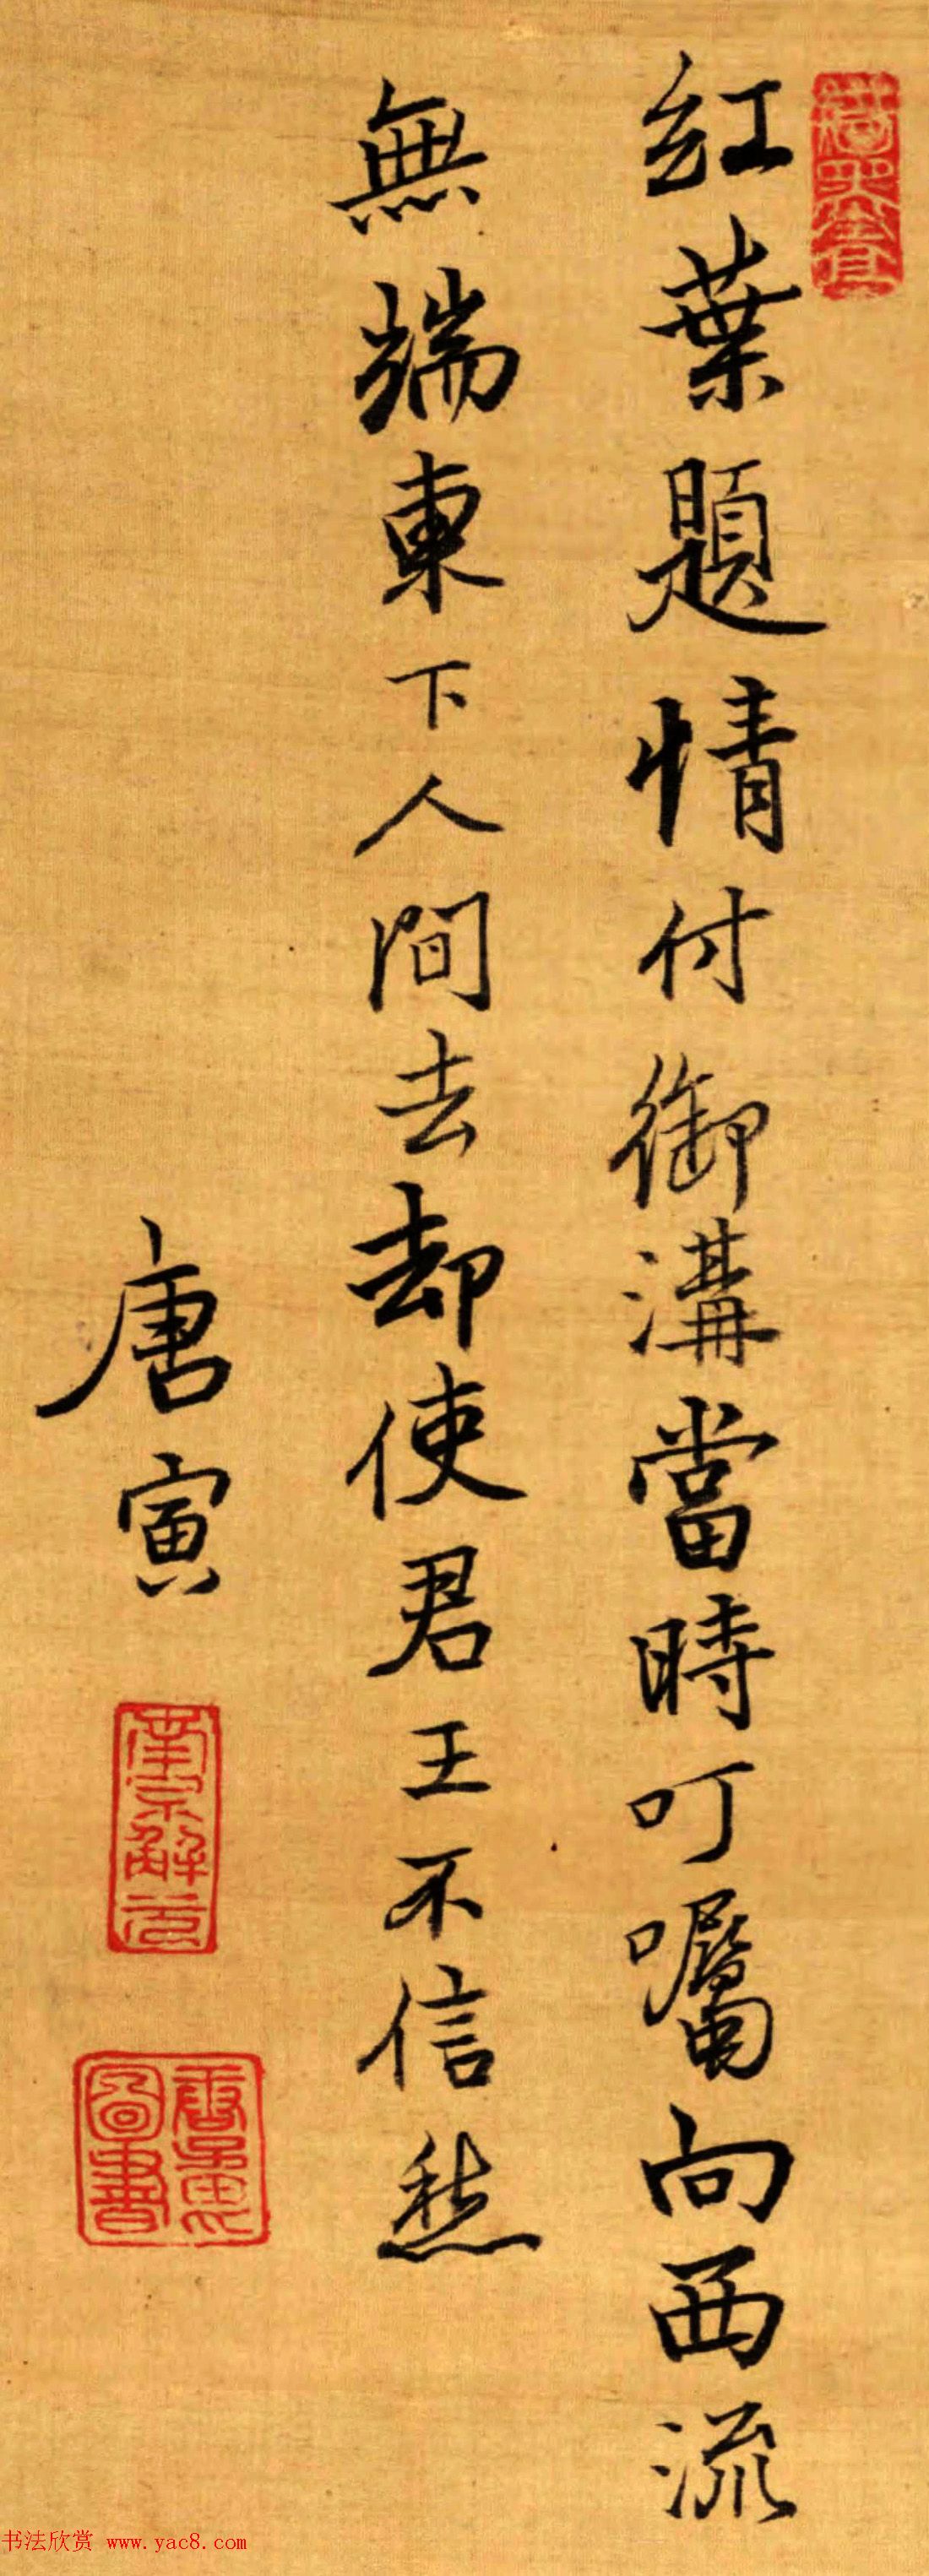 紅葉題情付御溝當時叮囑向西流
無端東下人間去却使君王不信愁
唐寅
南京解元
唐居士
圖書
书法欣赏 www.yac8.com